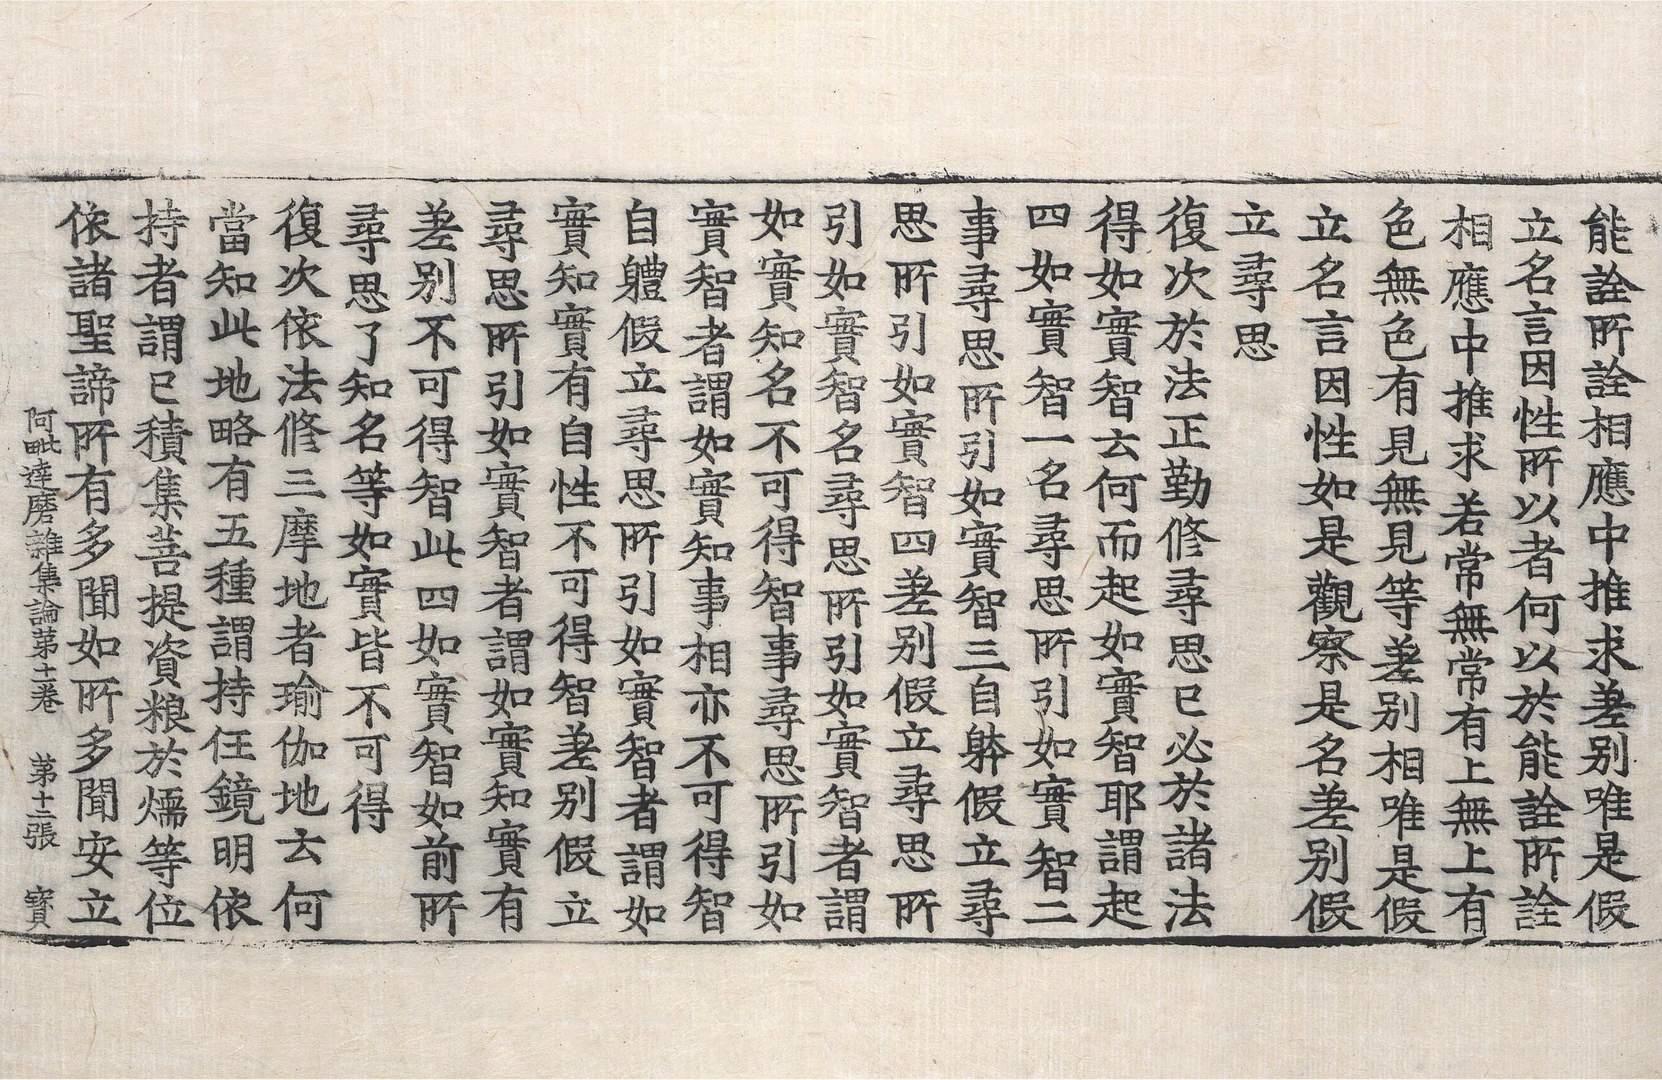 能詮所詮相應中推求差别唯是假
立名言因性所以者何以於能詮所詮
相應中推求若常無常有上無上有
色無色有見無見等差别相唯是假
立名言因性如是觀察是名差别假
立尋思
復次於法正勤修尋思已必於諸法
得如實智云何而起如實智耶謂起
四如實智一名尋思所引如實智二
事尋思所引如實智三自躰假立尋
思所引如實智四差别假立尋思所
引如實智名尋思所引如實智者謂
如實知名不可得智事尋思所引如
實智者謂如實知事相亦不可得智
自體假立尋思所引如實智者謂如
實知實有自性不可得智差别假立
尋思所引如實智者謂如實知實有
差别不可得智此四如實智如前所
尋思了知名等如實皆不可得
復次依法修三摩地者瑜伽地云何
當知此地略有五種謂持任鏡明依
持者謂已積集菩提資粮於煗等位
依諸聖諦所有多聞如所多聞安立
阿毗達磨雜集論第十一卷 第十二張 寳